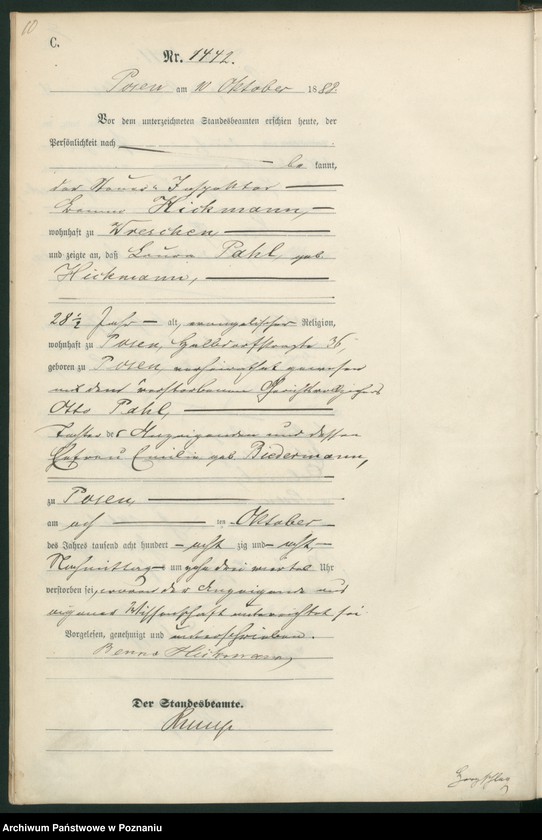 10
C.
Nr. 1442.
Posen am 10 Oktober 1888.
Vor dem unterzeichneten Standesbeamten erschien heute, der
Persönlichkeit nach
be kannt,
der Steuer-Inspektor
Benno Hickmann,
wohnhaft zu Wreschen
und zeigte an, daß Laura Pahl, geb.
Hickmann,
28 1/2 Jahr alt, evangelischer Religion,
wohnhaft zu Posen, Halbdorfstraße 36,
geboren zu Posen, verheirathet gewesen
mit dem verstorbenen Gerichtsvollzieher
Otto Pahl,
Tochter des Anzeigenden und dessen
Ehefrau Emilie geb. Biedermann,
zu Posen,
am acht ten Oktober
des Jahres tausend acht hundert acht zig und acht,
Nachmittag um zehn dreiviertel Uhr
verstorben sei, wovon der Anzeigende aus
eigener Wissenschaft unterrichtet sei
Vorgelesen, genehmigt und unterschrieben.
Benno Hickmann
Der Standesbeamte.
Archiwum Państwowe w Poznaniu